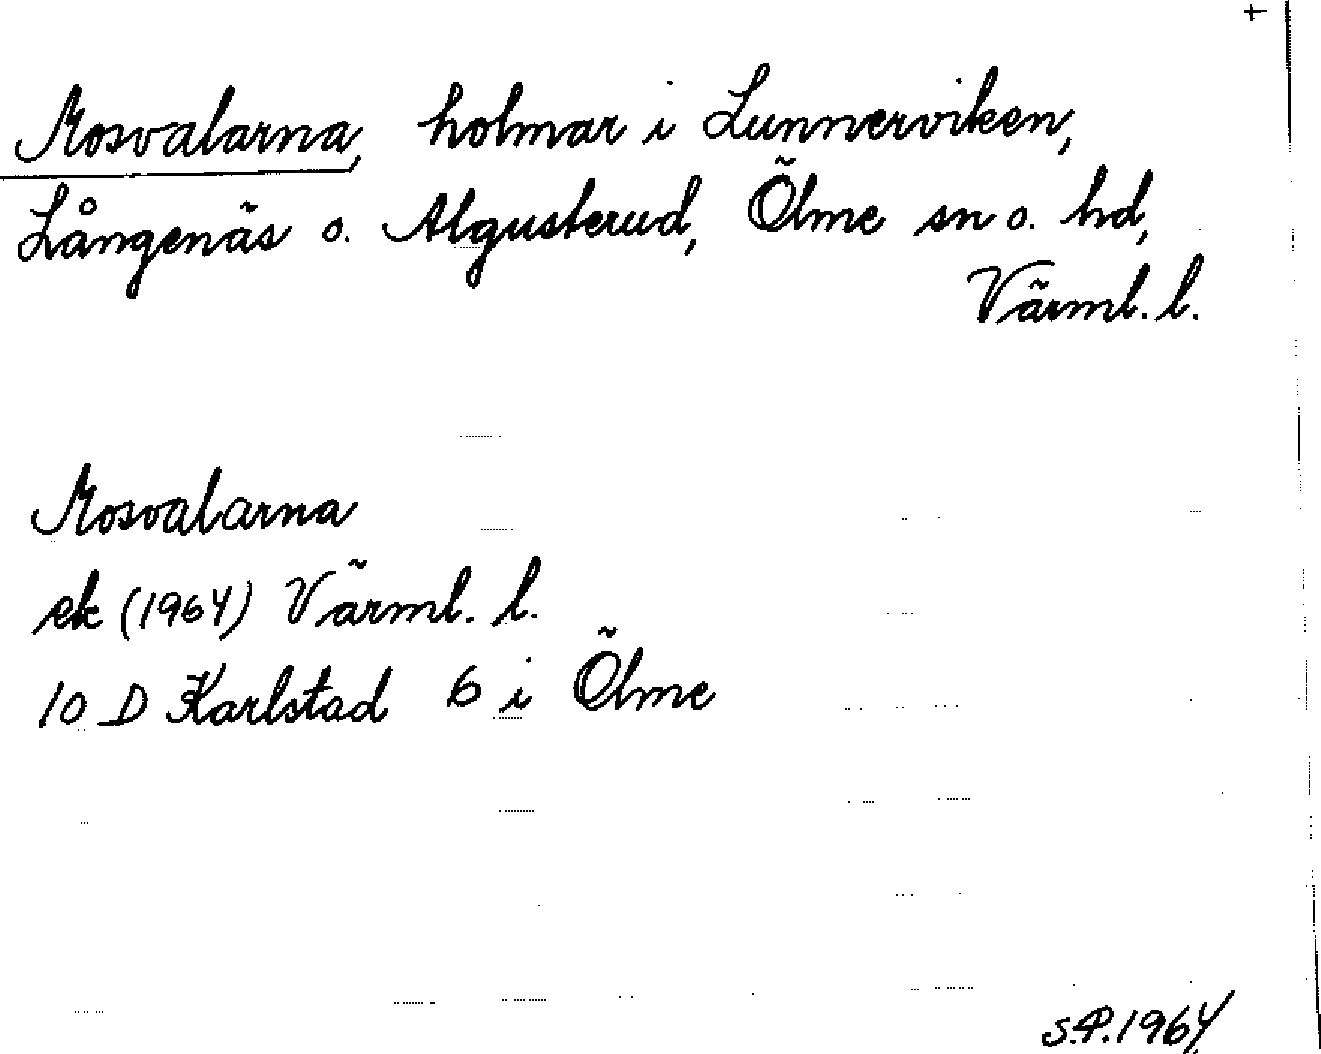 +
Mosvalarna, holmar i Lunnerviken,
Långenäs o. Algusterud, Ölme sn o. hd,
Värml. l.
Mosvalarna
ek (1964) Värml. l.
10 D Karlstad 6 i Ölme
S.P. 1964